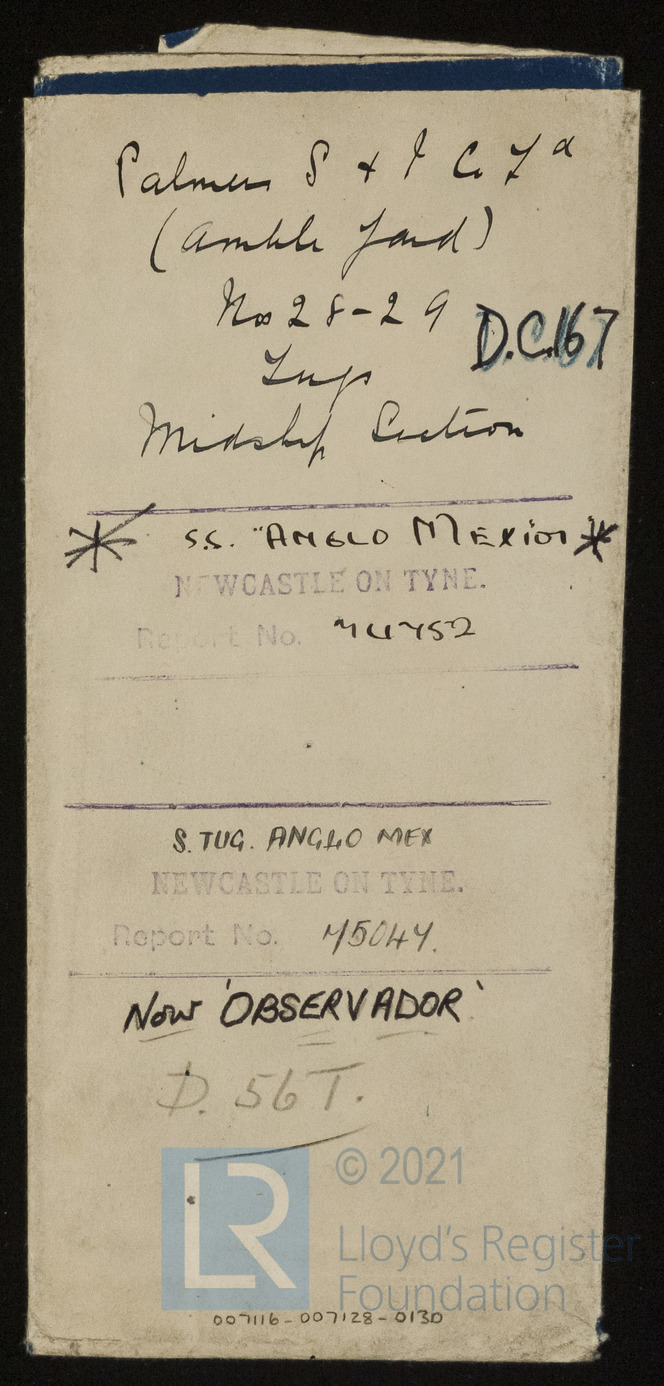 Palmers S & I Co Ld
(Amble Yard)
Nos 28-29
D.C.167
Tugs
Midship Section
S.S. "ANGLO MEXICAN"
NEWCASTLE ON TYNE.
Report No.
S. TUG. ANGLO MEX
NEWCASTLE ON TYNE.
Report No. 75047.
Now 'OBSERVADOR'
D. 56T.
LR
© 2021
Lloyd's Register
Foundation
007116-007128-0130